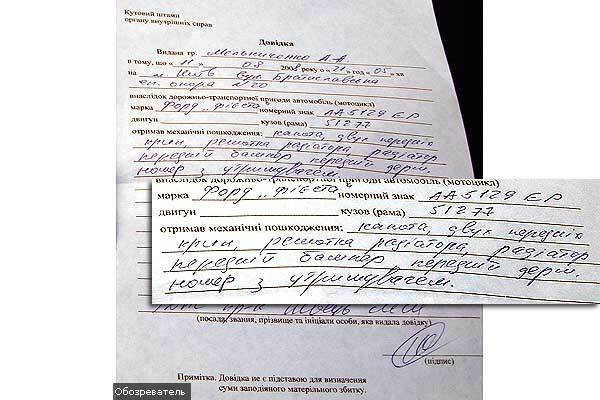 Кутовий штамп
органу внутрішніх справ
Довідка
Видана гр. Мельниченко А А
в тому, що « 11 » 08 2008 року о « 21 » год « 05 » хв
на м. Київ вул Братиславська
ел. опора № 20
внаслідок дорожньо-транспортної пригоди автомобіль (мотоцикл)
марка Форд „ Фієста " номерний знак АА 5129 ЕР
двигун кузов (рама) 51277
отримав механічні пошкодження: капота, двух передніх
крил, решотка радіатора, радіатор
передній бампер передній держ.
номер з утримувачем.
внаслідок дорожньо-транспортної пригоди автомобіль (мотоцикл)
марка Форд „ Фієста " номерний знак АА 5129 ЕР
двигун кузов (рама) 51277
отримав механічні пошкодження: капота, двух передніх
крил, решотка радіатора, радіатор
передній бампер передній держ.
номер з утримувачем.
(посада, звання, прізвище та ініціали особи, яка видала довідку)
(підпис)
Примітка. Довідка не є підставою для визначення
суми заподіяного матеріального збитку.
Обозреватель